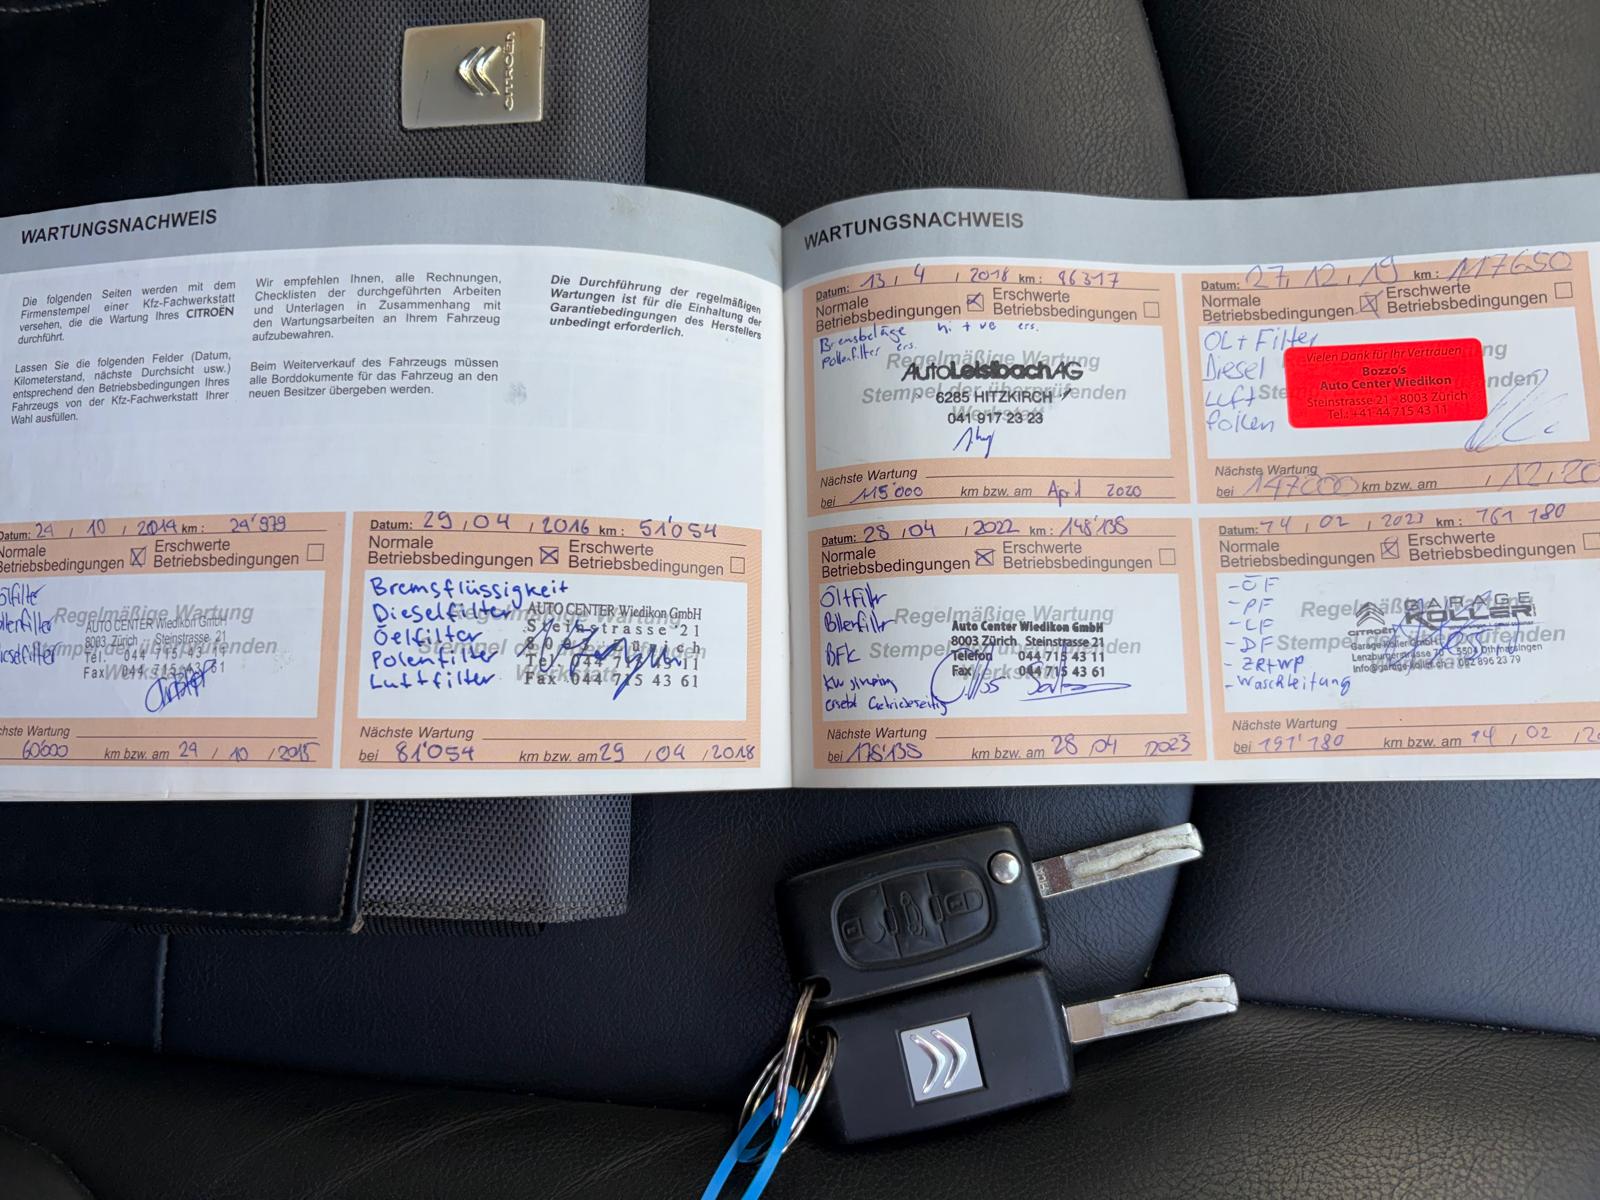 CITROËN
WARTUNGSNACHWEIS
Die folgenden Seiten werden mit dem
Firmenstempel einer Kfz-Fachwerkstatt
versehen, die die Wartung Ihres CITROËN
durchführt.
Lassen Sie die folgenden Felder (Datum,
Kilometerstand, nächste Durchsicht usw.)
entsprechend den Betriebsbedingungen Ihres
Fahrzeugs von der Kfz-Fachwerkstatt Ihrer
Wahl ausfüllen.
Wir empfehlen Ihnen, alle Rechnungen,
Checklisten der durchgeführten Arbeiten
und Unterlagen in Zusammenhang mit
den Wartungsarbeiten an Ihrem Fahrzeug
aufzubewahren.
Beim Weiterverkauf des Fahrzeugs müssen
alle Borddokumente für das Fahrzeug an den
neuen Besitzer übergeben werden.
Die Durchführung der regelmäßigen
Wartungen ist für die Einhaltung der
Garantiebedingungen des Herstellers
unbedingt erforderlich.
Datum: 24 / 10 / 2014 km: 29'979
Normale Betriebsbedingungen
Erschwerte Betriebsbedingungen
Regelmäßige Wartung
AUTO CENTER Wiedikon GmbH
8003 Zürich Steinstrasse 21
Tel. 044 715 43 11
Fax 044 715 43 61
Nächste Wartung
60000 km bzw. am 24 / 10 / 2015
Datum: 29 / 04 / 2016 km: 51'054
Normale Betriebsbedingungen
Erschwerte Betriebsbedingungen
Bremsflüssigkeit
Dieselfilter
Öelfilter
Polenfilter
Luftfilter
Regelmäßige Wartung
AUTO CENTER Wiedikon GmbH
Steinstrasse 21
Fax 044 715 43 61
Nächste Wartung
bei 81'054 km bzw. am 29 / 04 / 2018
WARTUNGSNACHWEIS
Datum: 13 / 4 / 2018 km: 86317
Normale Betriebsbedingungen
Erschwerte Betriebsbedingungen
Bremsbeläge hi + ve ers.
Pollenfilter ers.
Regelmäßige Wartung
Stempel der überprüfenden
Werkstatt
Auto Leisibach AG
6285 HITZKIRCH
041 917 23 23
Nächste Wartung
bei 115'000 km bzw. am April 2020
Datum: 27, 12, 19 km: 117650
Normale Betriebsbedingungen
Erschwerte Betriebsbedingungen
ÖL + Filter
Diesel
Luft
Pollen
Vielen Dank für Ihr Vertrauen
Bozzo's
Auto Center Wiedikon
Steinstrasse 21 - 8003 Zürich
Tel.: +41 44 715 43 11
Nächste Wartung
bei 147000 km bzw. am / 12, 20
Datum: 28 / 04 / 2022 km: 148'135
Normale Betriebsbedingungen
Erschwerte Betriebsbedingungen
Regelmäßige Wartung
Stempel der überprüfenden
Auto Center Wiedikon GmbH
8003 Zürich Steinstrasse 21
Telefon 044 715 43 11
Fax 044 715 43 61
Nächste Wartung
bei 178'135 km bzw. am 28 / 04 2023
Datum: 14 / 02 / 2023 km: 161 180
Normale Betriebsbedingungen
Erschwerte Betriebsbedingungen
- ÖF
- PF
- LF
- DF
- ZR+WP
- Waschleitung
CITROËN
GARAGE
KOLLER
Garage Koller GmbH
Lenzburgerstrasse
5504 Othmarsingen
info@garage-koller.ch
062 896 23 79
Nächste Wartung
bei 191'180 km bzw. am 14 / 02 /